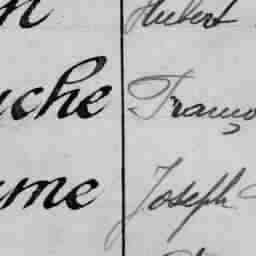 n Hubert
uche Franço
ume Joseph